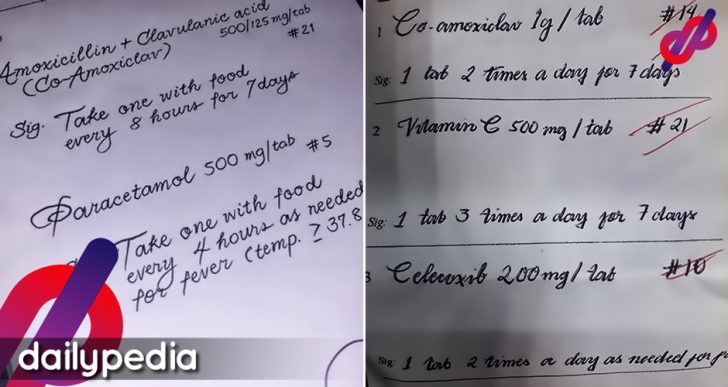 Amoxicillin + Clavulanic acid
(Co-Amoxiclav) 500/125 mg/tab
#21
Sig. Take one with food
every 8 hours for 7days
Paracetamol 500 mg/tab #5
Take one with food
every 4 hours as needed
for fever (temp. ≥ 37.8
dailypedia
1 Co-amoxiclav 1g / tab #14
Sig: 1 tab 2 times a day for 7 days
2 Vitamin C 500 mg / tab #21
Sig: 1 tab 3 times a day for 7 days
3 Celecoxib 200 mg / tab #10
Sig: 1 tab 2 times a day as needed for